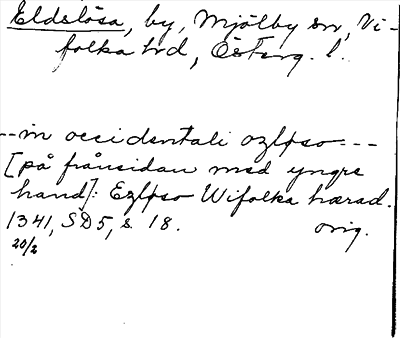 Eldslösa, by, Mjölby sn, Vi-
folka hd, Österg. l.
--in occidentali ozløso---
[på frånsidan med yngre
hand]: Ezløso Wifolka hærad.
1341, SD5, s. 18. orig.
20/2